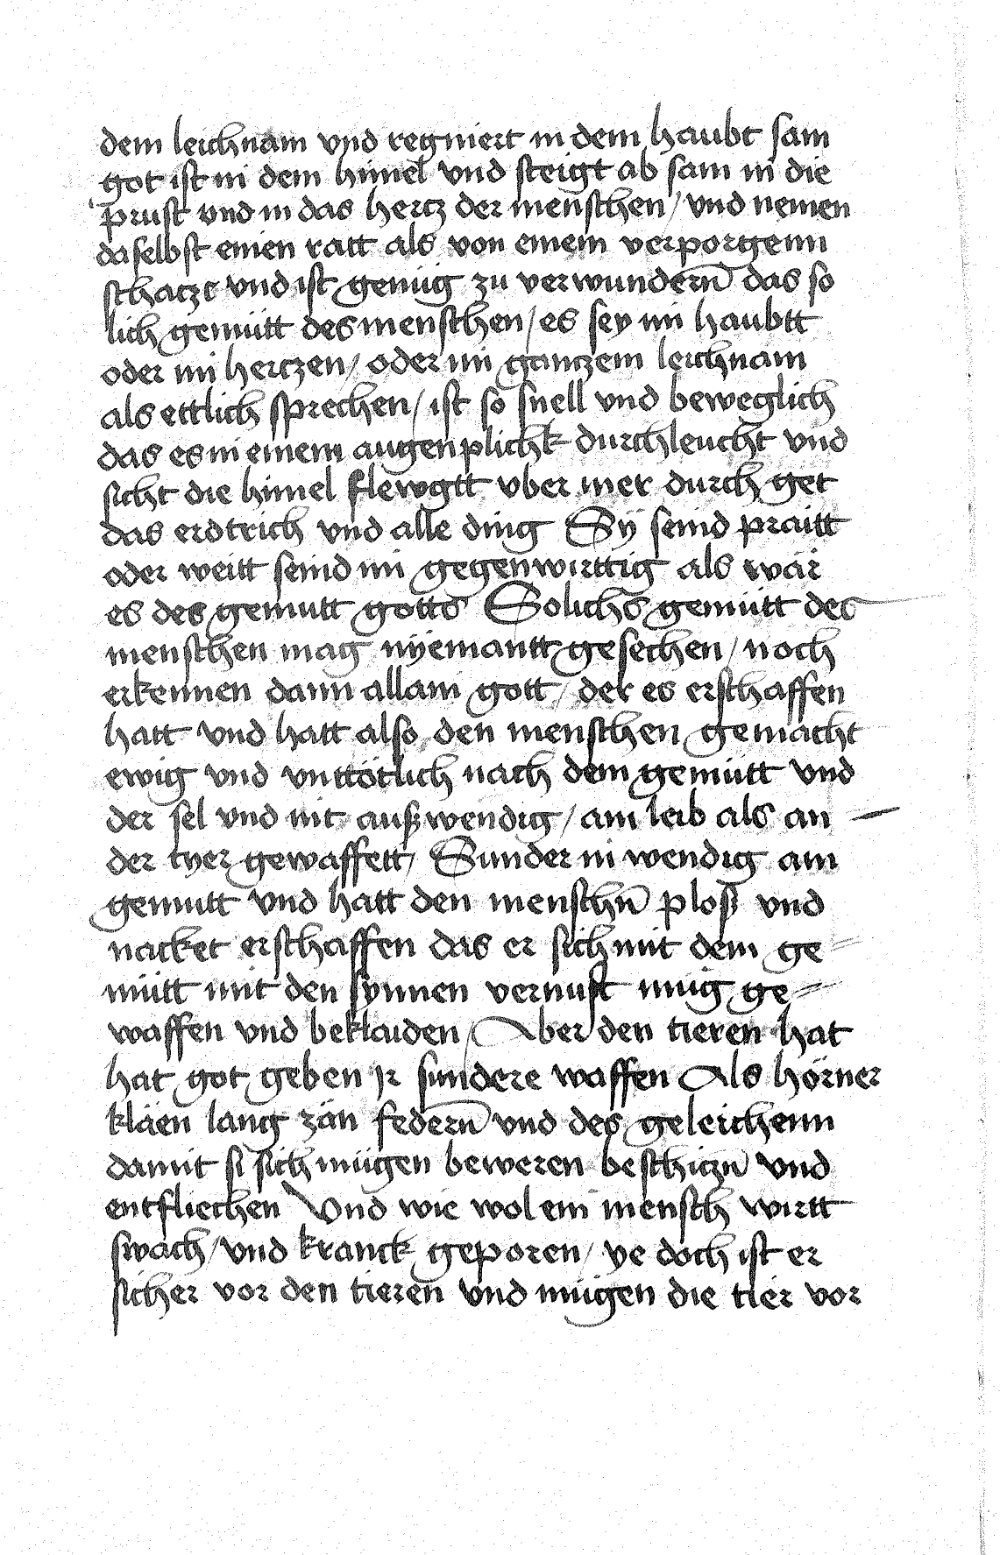 dem leichnam vnd regniert in dem haubt sam
got ist in dem himel vnd steigt ab sam in die
prust vnd in das hertz der menschen / vnd nemen
daselbst einen ratt als von einem verporgenn
schatze vnd ist genúg zu verwundern̄ das so
lich gemütt des menschen / es sey im haubtt
oder im hertzen / oder im gantzem leichnam
als ettlich sprechen / ist so snell vnd beweglich
das es in einem augenplichk durchleucht vnd
sicht die himel flewgtt vber mer durch get
das erdtrich vnd alle ding Sÿ seind praitt
oder weitt seind im gegenwirttig als wär
es des gemutt gotts Solichs gemütt des
menschen mag nÿemantt gesechen / noch
erkennen dann allain gott / der es erschaffen
hatt vnd hatt also den menschen gemacht
ewig vnd vnttötlich nach dem gemütt vnd
der sel vnd nit außwendig / am leib als an
der tyer gewaffett / Sunder in wendig am
gemutt vnd hatt den menschn̄ ploß vnd
nacket erschaffen das er sich mit dem ge=
mütt mit den synnen vernuft múg ge=
waffen vnd beklaiden / Aber den tieren hat
hat got geben ir sundere waffen Als hörner
kläen lang zän federn̄ vnd des geleichenn
damit si sich mügen beweren beschiczn̄ vnd
entfliechen Vnd wie wol ein mensch wirtt
swach / vnd kranck geporen / ye doch ist er
sicher vor den tieren vnd mügen die tier vor